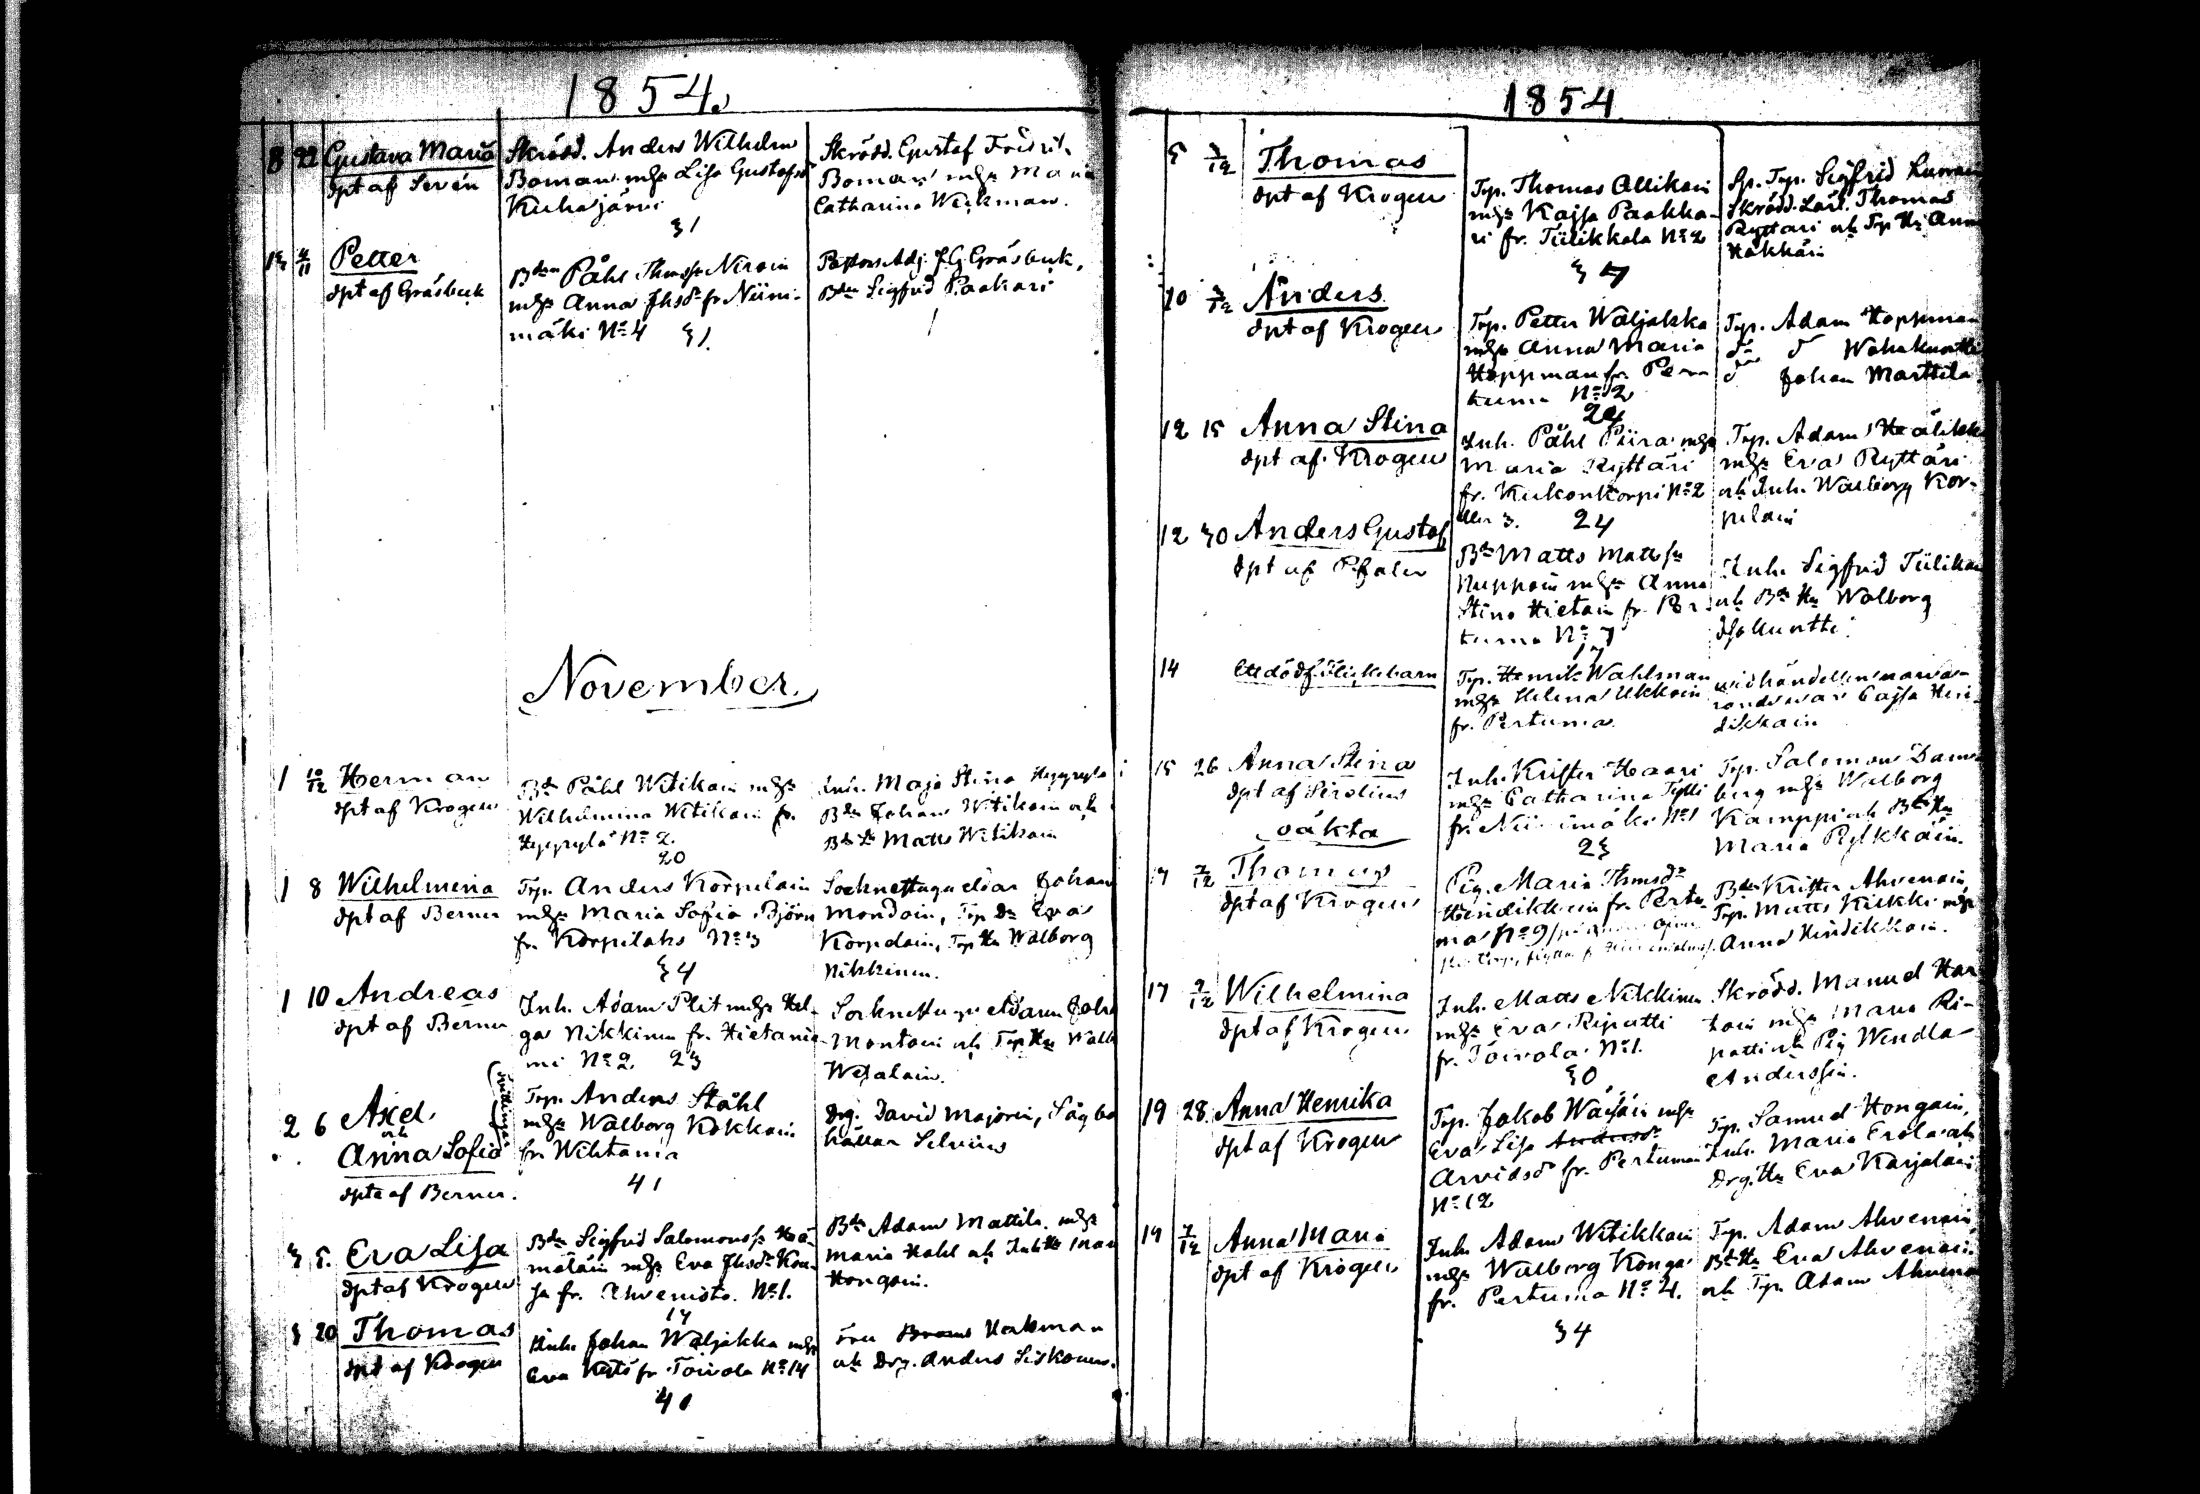 1854.
8 22 Gustava Maria
dpt af Sevén
Skrädd. Anders Wilhelm
Boman m. h. Lisa Gustafsd
Kuhajärvi
31
Skrädd. Gustaf Fridrik
Boman m. h. Maria
Catharina Wickman.
13 4/11 Petter
dpt af Gräsbeck
Bdn Påhl Thmss. Niroin
m. h. Anna Jhsdr fr Niini-
mäki No 4 31.
Pastors Adj. J. G. Gräsbeck,
Bdn Sigfrid Paakari
November.
1 10/12 Herman
dpt af Krogen
Bdn Påhl Witikain m. h.
Wilhelmina Witikain fr.
Hyyrylä No 2.
20
Inh. Maja Stina Hyyrylä
Bdn Johan Witikain och
Bde Sn Matts Witikain
1 8 Wilhelmina
dpt af Berner
Trp. Anders Korpelain
m. h. Maria Sofia Björn
fr. Korpilaks No 3
34
Socknettugu eldar Johan
Mondoin, Trp Dr Eva
Korpelain, Trp Hu Walborg
Nikkinen.
1 10 Andreas
dpt af Berner
Inh. Adam Plit m. h. Hel-
ga Nikkinen fr. Hietanie-
mi No 2. 23
Montoin och Trp Hu Walb
2 6 Axel.
och
Anna Sofia
dpta af Berner.
(tvillingar)
Trp. Anders Ståhl
m. h. Walborg Kokkoin
fr. Wihtama
41
Drg. David Majorin, Sågbo
hållar Selenius
3 5. Eva Lisa
dpt af Krogen
Bdn Sigfrid Salomonss. Hä-
mäläin m. h. Eva Jhsdr Kou-
sa fr. Ahvenisto. No 1.
17
Bdn Adam Mattila m. h.
Maria Hahl och Inh Hu Mar
Hongain.
3 20 Thomas
dpt af Krogen
Inh. Johan Waljakka m. h.
Eva Kyts fr. Toivola No 14
41
och Drg. Anders Siskonen.
1854
5 3/12 Thomas
dpt af Krogen
Trp. Thomas Ollikain
m. h. Kajsa Paakka-
ri fr. Tiilikkala No 2
37
Sp. Trp. Sigfrid
Skrädd. Lärl. Thomas
Ryttäri och Trp Hu Anna
Häkkäin
10 3/12 Anders
dpt af Krogen
Trp. Petter Waljakka
m. h. Anna Maria
Hoppman fr. Per-
tuma No 2
24
Trp. Adam Hoppman
do do Wahakuntti
do Johan Marttila.
12 15 Anna Stina
dpt af Krogen
Inh. Påhl Piira m. h.
Maria Ryttäri
fr. Kukonkorpi No 2
eller 3. 24
Trp. Adam
m. h. Eva Ryttäri
och Inh. Walborg Kor-
pelain
12 30 Anders Gustaf
dpt af Pfaler
Bdn Matts Mattss.
Nuppoin m. h. Anna
Stina Hietain fr. Per-
tuma No 7
17
Inh. Sigfrid Tiilikain
och Bdn Hu Walborg
14 Ett dödfödt flickebarn
Trp. Henrik Wahlman
m. h. Helena Ukkoin
fr. Pertuma.
vid händelsen narva-
rande var Cajsa Hen-
dikkain
15 26 Anna Stina
dpt af Sirelius
Inh. Krister Haari
m. h. Catharina Tylli
fr. Niinimäki No 1
23
Trp. Salomon Dam-
berg m. h. Walborg
Kamppi och Bde Hu
Maria Pylkkäin.
17 7/12 oäkta
Thomas
dpt af Krogen
Pig. Maria Thmsdr
Hindikkain fr. Pertu-
ma No 9
Bdn Krister Ahvenain,
Trp. Matts Kiikki m. h.
Anna Hindikkain.
17 9/12 Wilhelmina
dpt af Krogen
Inh. Matts Nikkinen
m. h. Eva Ripatti
fr. Toivola No 1.
30
Skrädd. Manuel Har
tain m. h. Maria Ri-
patti och Pig Wendla
Andersin.
19 28 Anna Henrika
dpt af Krogen
Trp. Jakob Wäisäin m. h.
Eva Lisa Andersdr
Arvidsdr fr. Pertuma
No 12
Trp. Samuel Hongain,
Inh. Maria Erola och
Drg. Hu Eva Karjalain
19 7/12 Anna Maria
dpt af Krogen
Inh. Adam Witikkain
m. h. Walborg Konga
fr. Pertuma No 4.
34
Trp. Adam Ahvenain,
Bdn Hu Eva Ahvenain
och Trp. Adam Ahvenain